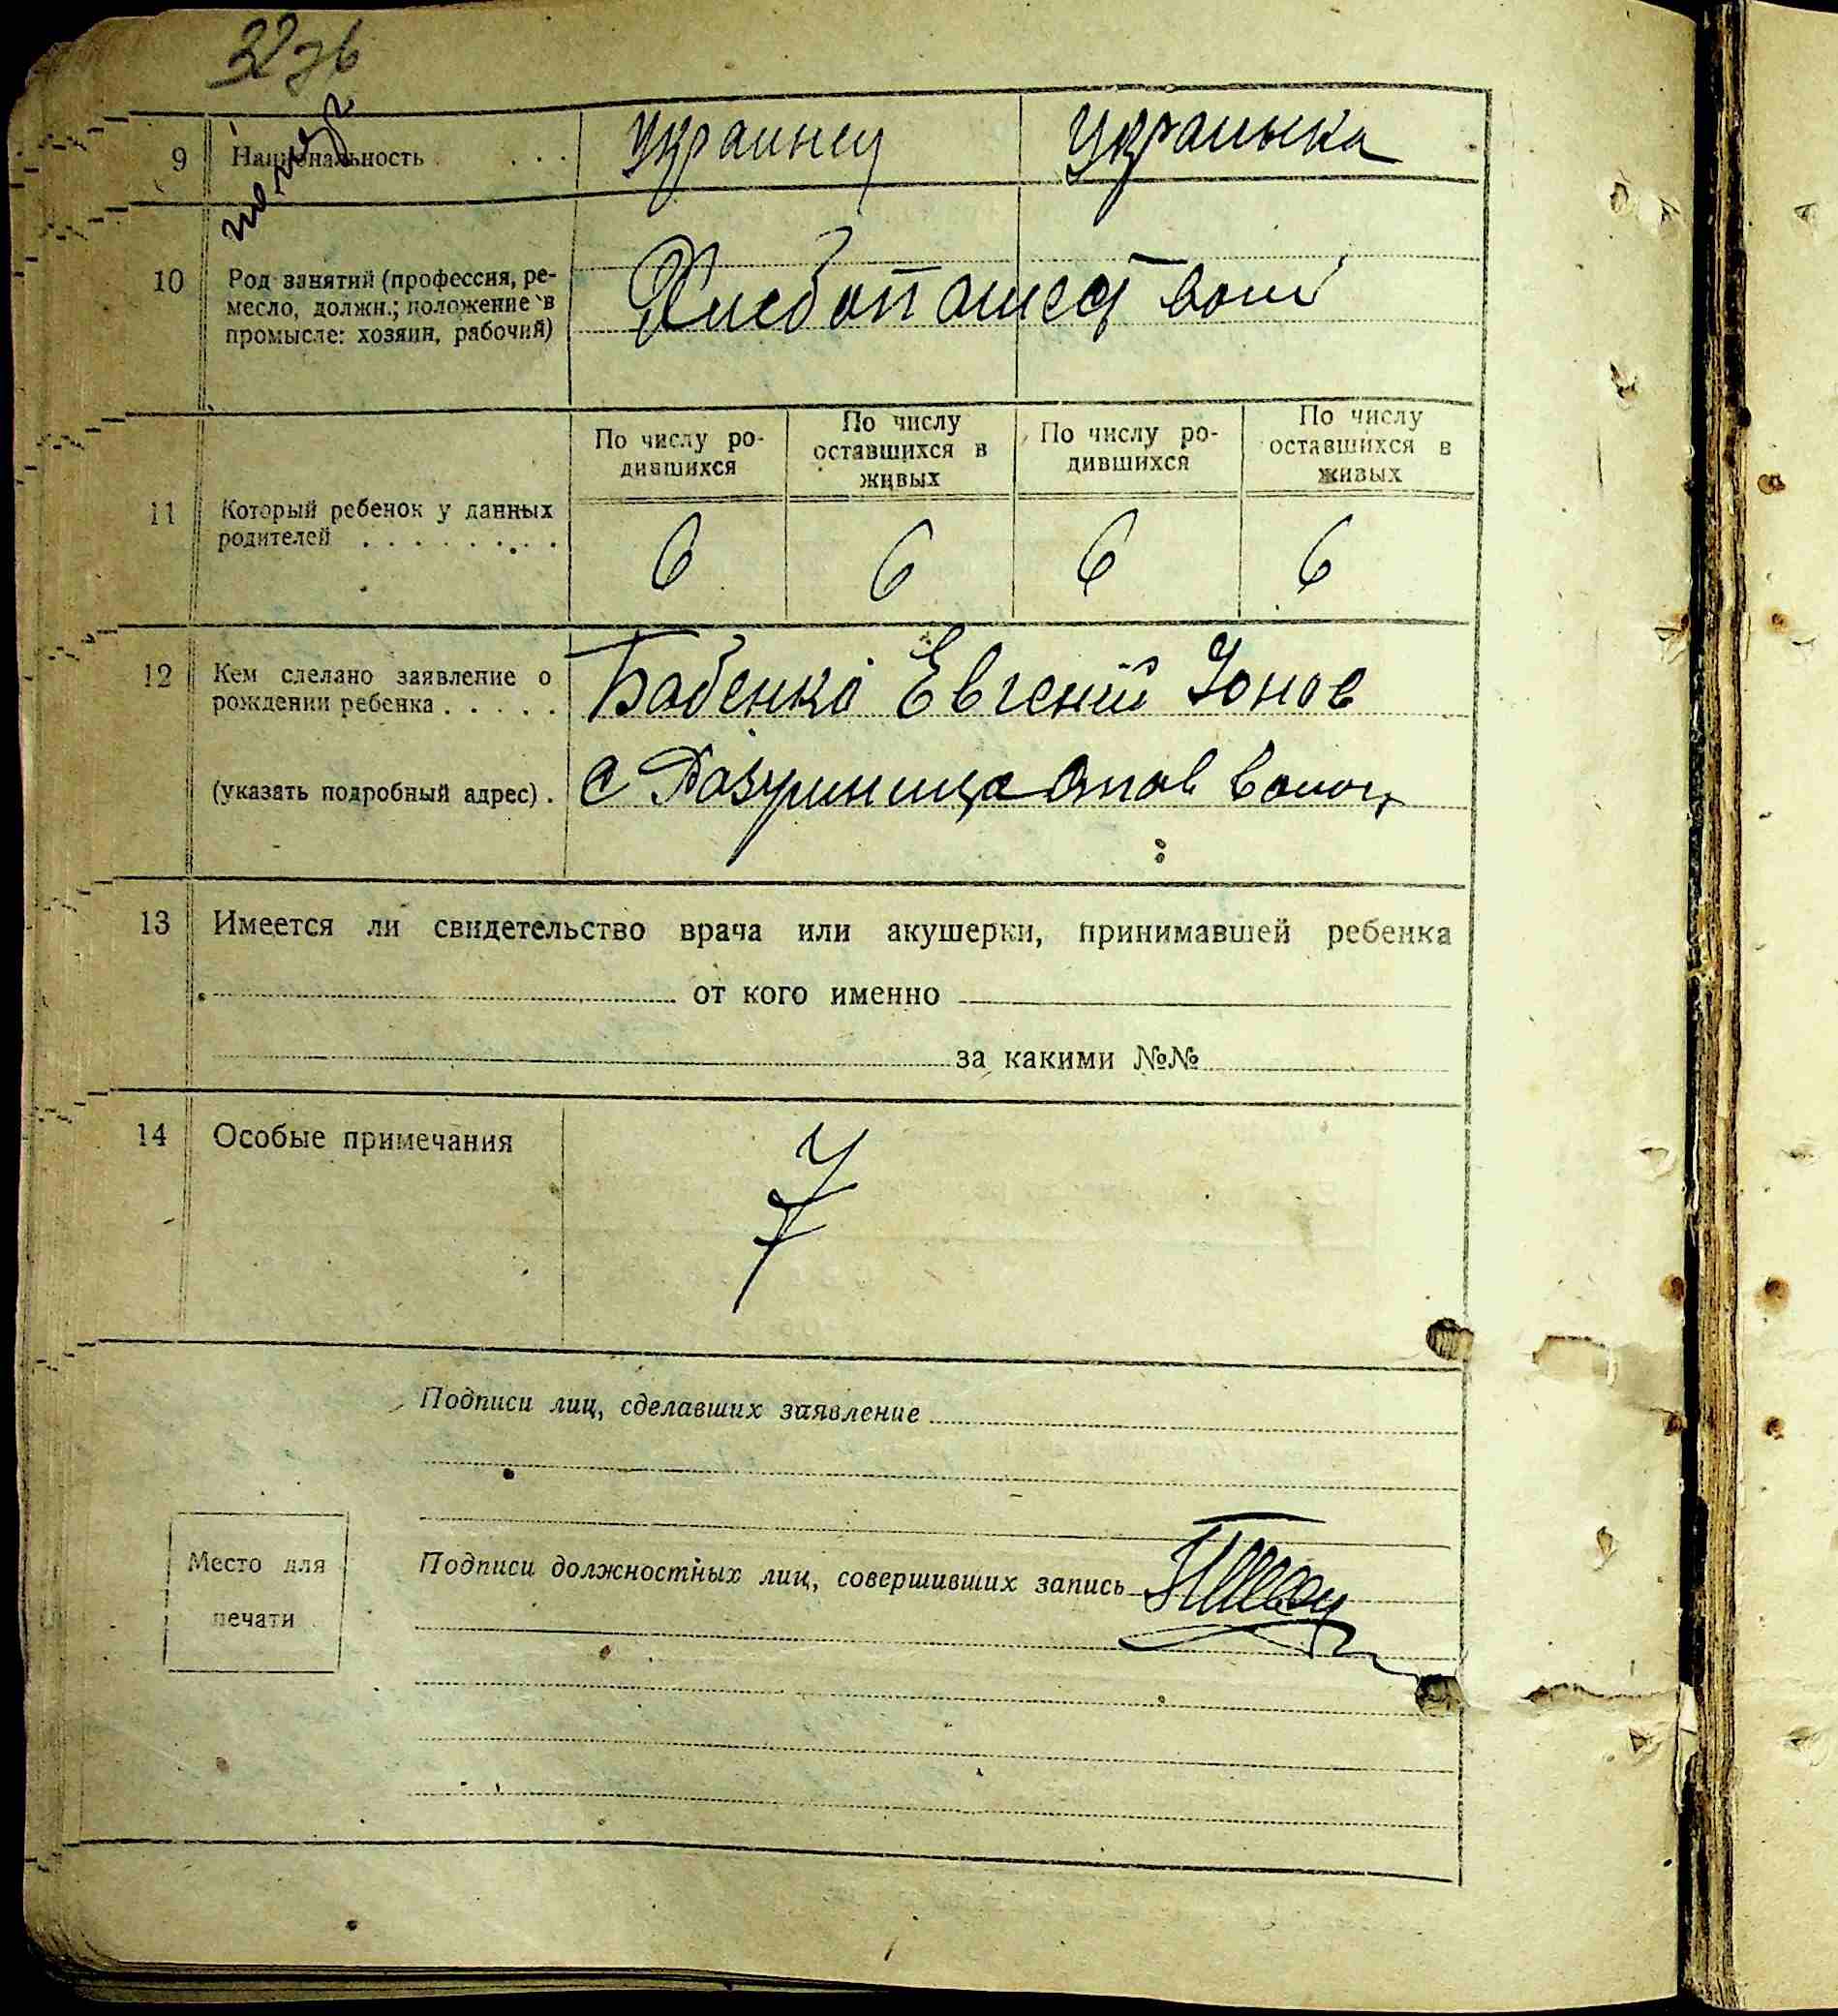 32 зв
9 Национальность . . . Украинец Украинка
10 Род занятий (профессия, ре-
месло, должн.; положение в
промысле: хозяин, рабочий)
Хлебопашеством
По числу ро-
дившихся
По числу
оставшихся в
живых
По числу ро-
дившихся
По числу
оставшихся в
живых
11 Который ребенок у данных
родителей . . . . . . . .
6 6 6 6
12 Кем сделано заявление о
рождении ребенка . . . . .
Бабенко Евгений Ионов
(указать подробный адрес) . с
13 Имеется ли свидетельство врача или акушерки, принимавшей ребенка
от кого именно
за какими №№
14 Особые примечания
Подписи лиц, сделавших заявление
Место для
печати
Подписи должностных лиц, совершивших запись